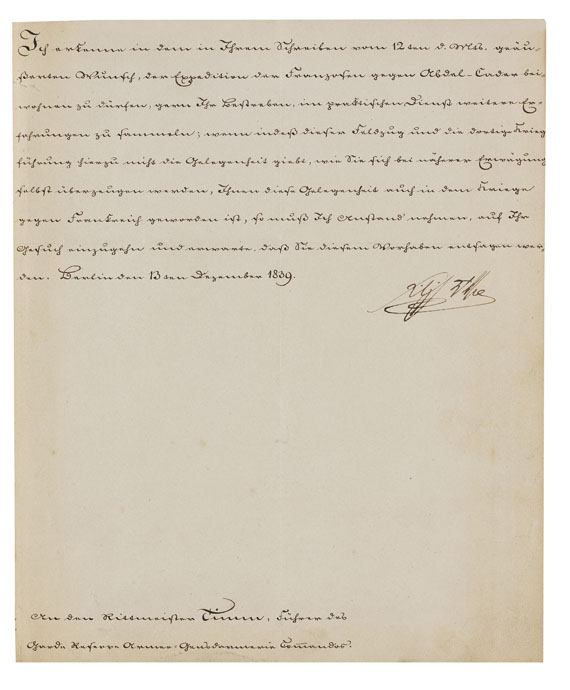 Ich erkenne in dem in Ihrem Schreiben vom 12ten d. Mts. geäu-
ßerten Wunsch, der Expedition der Franzosen gegen Abdel-Cader bei-
wohnen zu dürfen, gern Ihr Bestreben, im praktischen Dienst weitere Er-
fahrungen zu sammeln; wenn indeß dieser Feldzug und die dortige Krieg
führung hierzu nicht die Gelegenheit giebt, wie Sie sich bei näherer Erwägung
selbst überzeugen werden, Ihnen diese Gelegenheit auch in dem Kriege
gegen Frankreich geworden ist, so muß Ich Anstand nehmen, auf Ihr
Gesuch einzugehn und erwarte, daß Sie diesem Vorhaben entsagen wer-
den. Berlin den 13ten Dezember 1839.
An den Rittmeister Timm, Führer des
Garde Reserve Armee-Gensdarmerie Commandos.